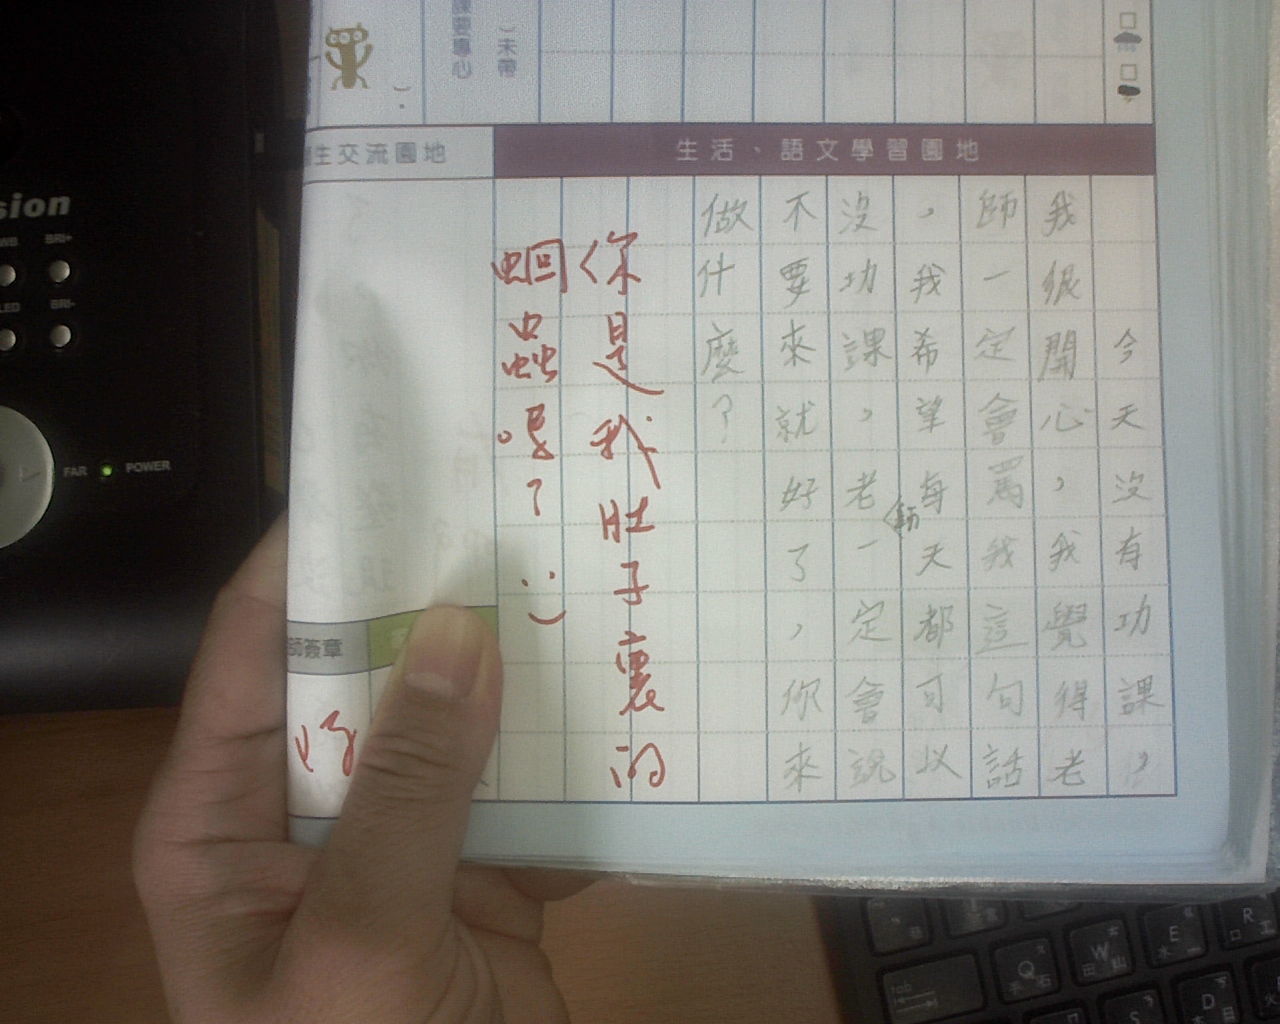 課要專心
）未帶
生交流園地
生活、語文學習園地
今天沒有功課，
我很開心，我覺得老
師一定會罵我這句話
，我希望每天都可以
沒功課，老師一定會說
不要來就好了，你來
做什麼？
你是我肚子裏的
蛔蟲喔？:)
師簽章
sion
WB
BRI+
LED
BRI-
FAR
POWER
tab
Q
手
石
W
田
山
E
水
R
口
工
S
D
木
日